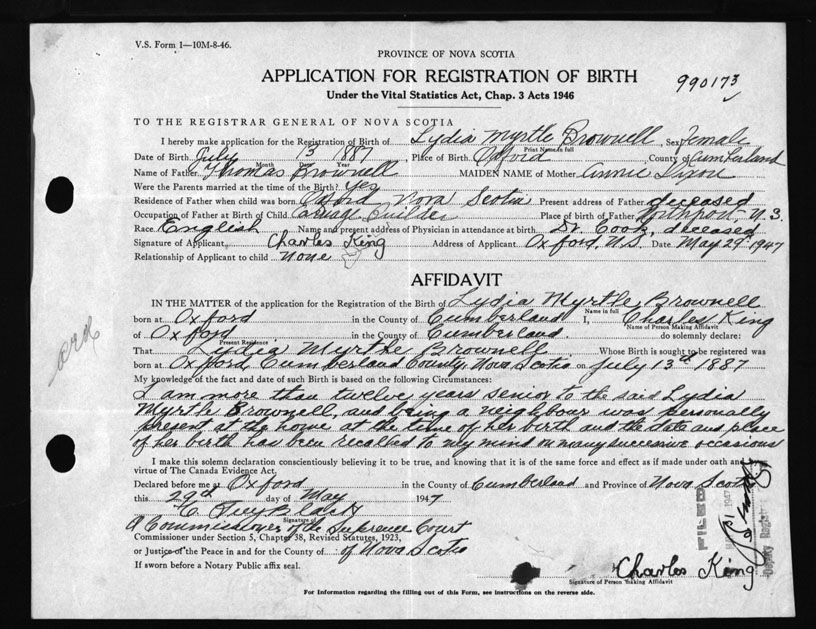 V.S. Form 1—10M-8-46.
PROVINCE OF NOVA SCOTIA
APPLICATION FOR REGISTRATION OF BIRTH
990173
Under the Vital Statistics Act, Chap. 3 Acts 1946
TO THE REGISTRAR GENERAL OF NOVA SCOTIA
I hereby make application for the Registration of Birth of Lydia Myrtle Brownell Sex Female
Print Name in full
Date of Birth July 13 1887 Place of Birth Oxford County of Cumberland
Month Date Year
Name of Father Thomas Brownell MAIDEN NAME of Mother Annie Dixon
Were the Parents married at the time of the Birth? Yes
Residence of Father when child was born Oxford Nova Scotia Present address of Father deceased
Occupation of Father at Birth of Child Carriage Builder Place of birth of Father N.S.
Race English Name and present address of Physician in attendance at birth Dr. Cook, deceased
Signature of Applicant Charles King Address of Applicant Oxford, N.S. Date May 29th 1947
Relationship of Applicant to child none
AFFIDAVIT
IN THE MATTER of the application for the Registration of the Birth of Lydia Myrtle Brownell
Name in full
born at Oxford in the County of Cumberland I, Charles King
Name of Person Making Affidavit
of Oxford in the County of Cumberland. do solemnly declare:
Present Residence
That Lydia Myrtle Brownell Whose Birth is sought to be registered was
born at Oxford, Cumberland County, Nova Scotia on July 13th 1887
My knowledge of the fact and date of such Birth is based on the following Circumstances:
I am more than twelve years senior to the said Lydia
Myrtle Brownell, and being a neighbour was personally
present at the home at the time of her birth and the date and place
of her birth has been recalled to my mind on many successive occasions
I make this solemn declaration conscientiously believing it to be true, and knowing that it is of the same force and effect as if made under oath and
virtue of The Canada Evidence Act.
Declared before me at Oxford in the County of Cumberland and Province of Nova Scotia
this 29th day of May 1947
Black
Signature of
A Commissioner of the Supreme Court
Commissioner under Section 5, Chapter 38, Revised Statutes, 1923,
or Justice of the Peace in and for the County of of Nova Scotia
If sworn before a Notary Public affix seal.
FILED
Deputy Registrar
Charles King
Signature of Person Making Affidavit
For Information regarding the filling out of this Form, see instructions on the reverse side.